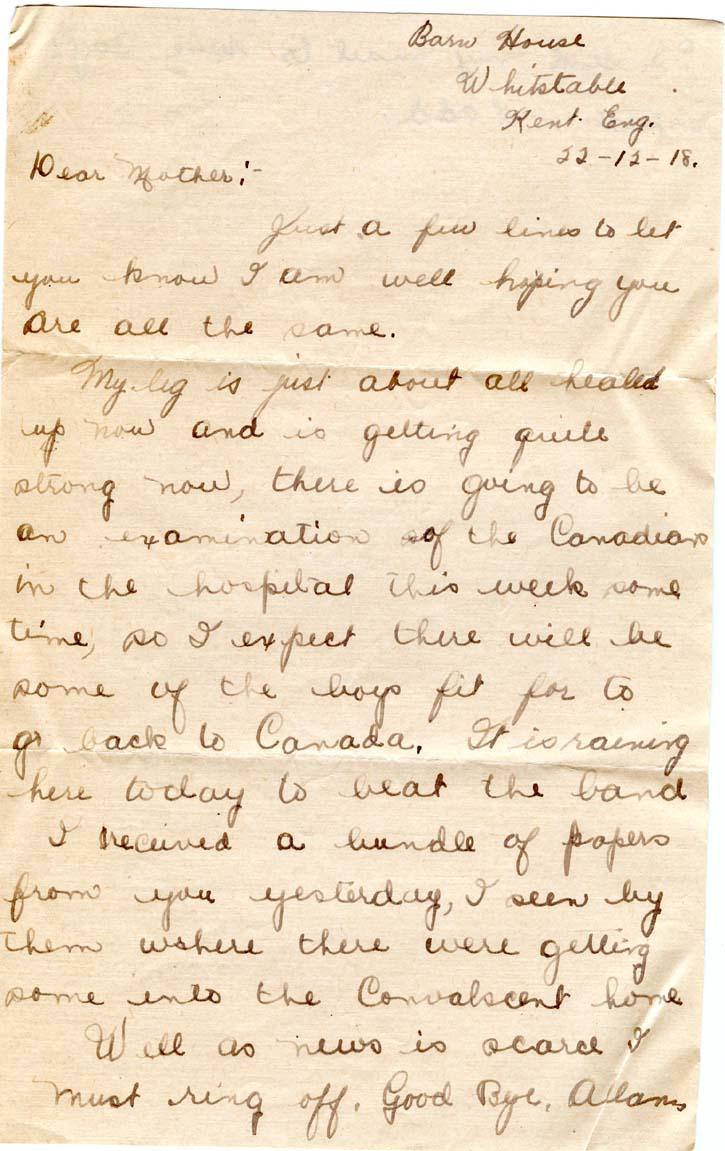 Barn House
Whitstable
Kent. Eng.
22-12-18.
Dear Mother:-
Just a few lines to let
you know I am well hoping you
are all the same.
My leg is just about all healed
up now and is getting quite
strong now, there is going to be
an examination of the Canadians
in the hospital this week some
time, so I expect there will be
some of the boys fit for to
go back to Canada. It is raining
here today to beat the band
I received a bundle of papers
from you yesterday, I seen by
them wshere there were getting
some into the Convalscent home
Well as news is scarce I
must ring off. Good Bye, Allan